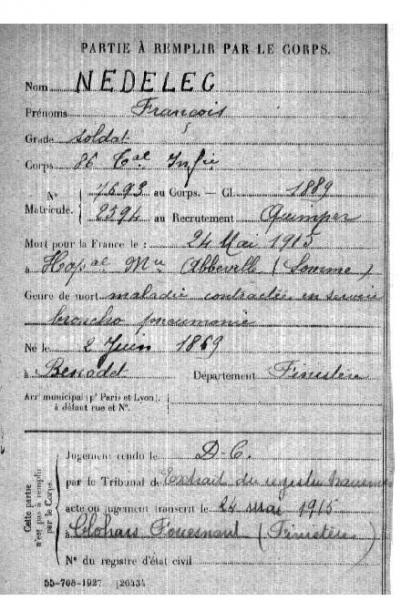 PARTIE À REMPLIR PAR LE CORPS.
Nom NEDELEC
Prénoms François
Grade soldat
Corps 86 Tal Infie
N° 7693 au Corps. — Cl. 1889
Matricule. 2394 au Recrutement Quimper
Mort pour la France le : 24 Mai 1915
à Hopal Abbeville (Somme)
Genre de mort maladie contractée en service
broncho pneumonie
Né le 2 Juin 1869
à Benodet Département Finistère
Arrt municipal (pr Paris et Lyon),
à défaut rue et N°.
Cette partie
n'est pas à remplir
par le Corps.
Jugement rendu le D-C.
par le Tribunal de Extrait du registre
acte ou jugement transcrit le 24 mai 1915
à Clohars Fouesnant (Finistère)
N° du registre d'état civil
55-708-1927. [26434]